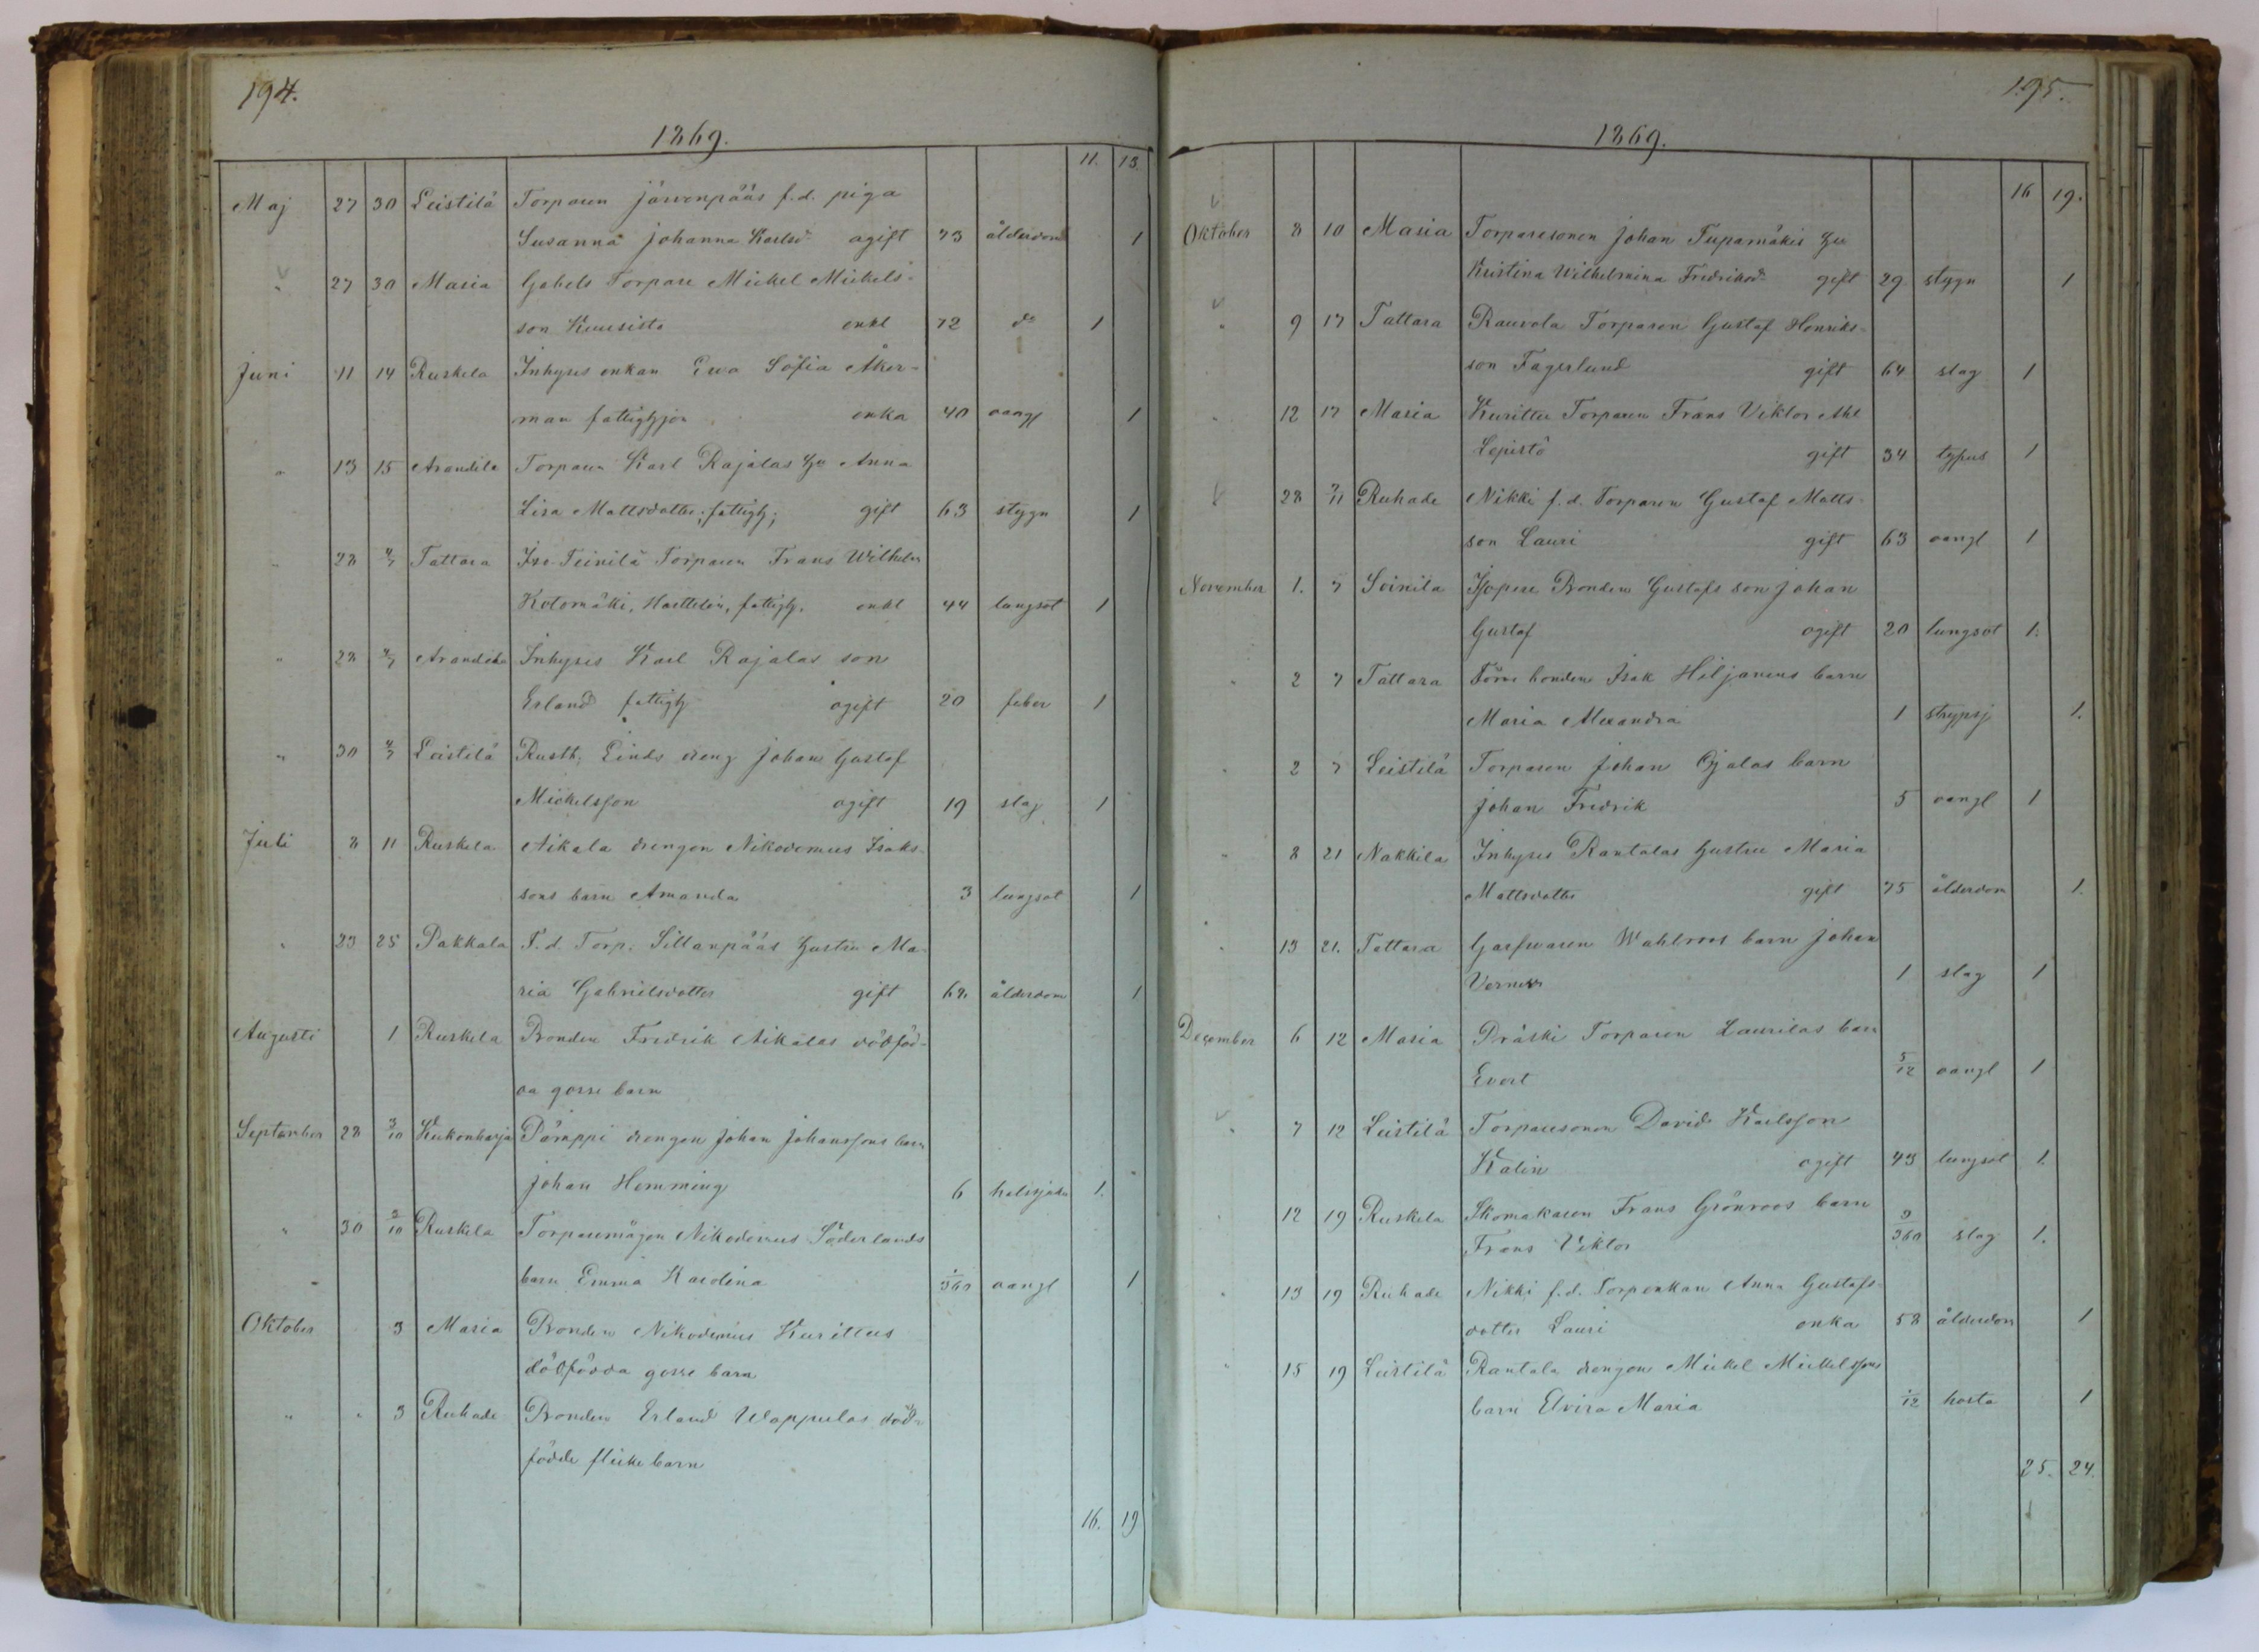 194.
1869.
11. 13.
Maj 27 30 Leistilä Torparen Järvenpääs f.d. piga
Susanna Johanna Karlsd ogift 73 ålderdom 1
" 27 30 Masia Gabels Torpare Mickel Mickels-
son Kuusisto enkl 72 do 1
Juni 11 14 Ruskela Inhyses enkan Ewa Sofia Åker-
man fattighjon enka 40 oangf 1
" 13 15 Arandila Torparen Karl Rajalas Hu Anna
Lisa Mattsdotter, fattigh; gift 63 stygn 1
" 28 4/7 Tattara Iso-Teinilä Torparen Frans Wilhelm
Kotomäki, fattigh. enkl 44 lungsot 1
" 28 4/7 Arandila Inhyses Karl Rajalas son
Erland fattigh ogift 20 feber 1
" 30 4/7 Leistilä Rusth. Einds dreng Johan Gustaf
Mickelsson ogift 19 slag 1
Juli 8 11 Ruskela Aikala drengen Nikodemus Isaks-
sons barn Amanda 3 lungsot 1
" 23 25 Pakkala F.d. Torp. Sillanpääs hustru Ma-
ria Gabrielsdotter gift 62 ålderdom 1
Augusti 1 Ruskela Bonden Fredrik Aikalas dödföd-
da gosse barn
September 28 3/10 Kukonharja Pämppi drengen Johan Johanssons barn
Johan Hemming 6 halssjuka 1.
" 30 3/10 Ruskela Torparemågen Nikodemus Söderlunds
barn Emma Karolina 1/360 oangf 1
Oktober 3 Masia Bonden Nikodemus Kurittus
dödfödda gosse barn
" " 3 Ruhade Bonden Erland Wappulas död-
födde flicke barn
16. 19
195.
1869.
16 19.
Oktober 8 10 Masia Torparesonen Johan Tupamäkis Hu
Kristina Wilhelmina Fredriksdr gift 29 stygn 1
" 9 17 Tattara Rauvola Torparen Gustaf Henriks-
son Fagerlund gift 64 slag 1
" 12 17 Masia Kurittu Torparen Frans Viktor
Lepistö gift 34 typus 1
28 7/11 Ruhade Nikki f.d. Torparen Gustaf Matts-
son Lauri gift 63 oangf 1
November 1. 7 Soinila Bonden Gustafs son Johan
Gustaf ogift 20 lungsot 1.
" 2 7 Tattara bonden Isak Hiljanens barn
Maria Alexandra 1 strypsj 1.
" 2 7 Leistilä Torparen Johan Ojalas barn
Johan Fredrik 5 oangf 1
" 8 21 Nakkila Inhyses Rantalas hustru Maria
Mattsdotter gift 75 ålderdom 1.
" 13 21. Tattara Garfvaren Wahlroos barn Johan
Verner 1 slag 1
December 6 12 Masia Präski Torparen Laurilas barn
Evert 5/12 oangf 1
" 7 12 Leistilä Torparesonen David Karlsson
Kalin ogift 43 lungsot 1.
" 12 19 Ruskela Skomakaren Frans Grönroos barn
Frans Viktor 9/360 slag 1.
" 13 19 Ruhade Nikki f.d. Torpenkan Anna Gustafs-
dotter Lauri enka 58 ålderdom 1
" 15 19 Leistilä Rantala drengen Mickel Mickelssons
barn Elvira Maria 1/12 hosta 1
25. 24.